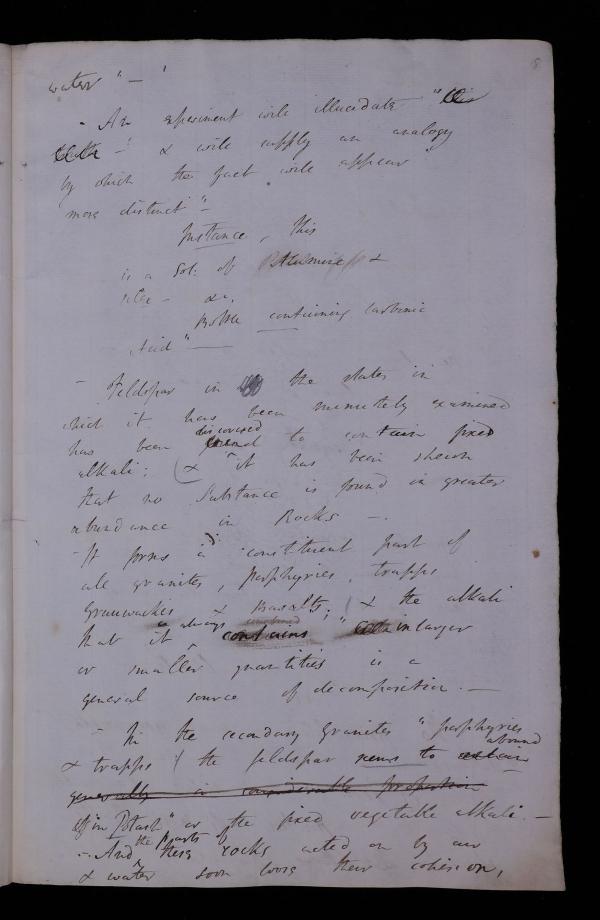 water" — "
- An experiment will illucidate "this
— " & will supply an analogy
by which the fact will appear
more distinct" —
Instance, this
is a Sol: of &
&c,
Bottle containing Carbonic
Acid" —
- Feldspar in the states in
which it has been minutely examined
discovered
has been found to contain fixed
alkali; (& "it has been shewn
that no Substance is found in greater
abundance in Rocks —.
- It forms a constituent part of
all granites, porphyries, trapps
Grunwackes & Basalts; (& the alkali
always combined
that it contains " in larger
or smaller quantities is a
general source of decomposition. —
- In the secondary Granites "porphyries
abound
& trapps / the feldspar seems to
generally in considerable proportion
in Potash" or the fixed vegetable alkali. —
the parts of
- And these rocks acted on by air
& water soon loose their cohesion,